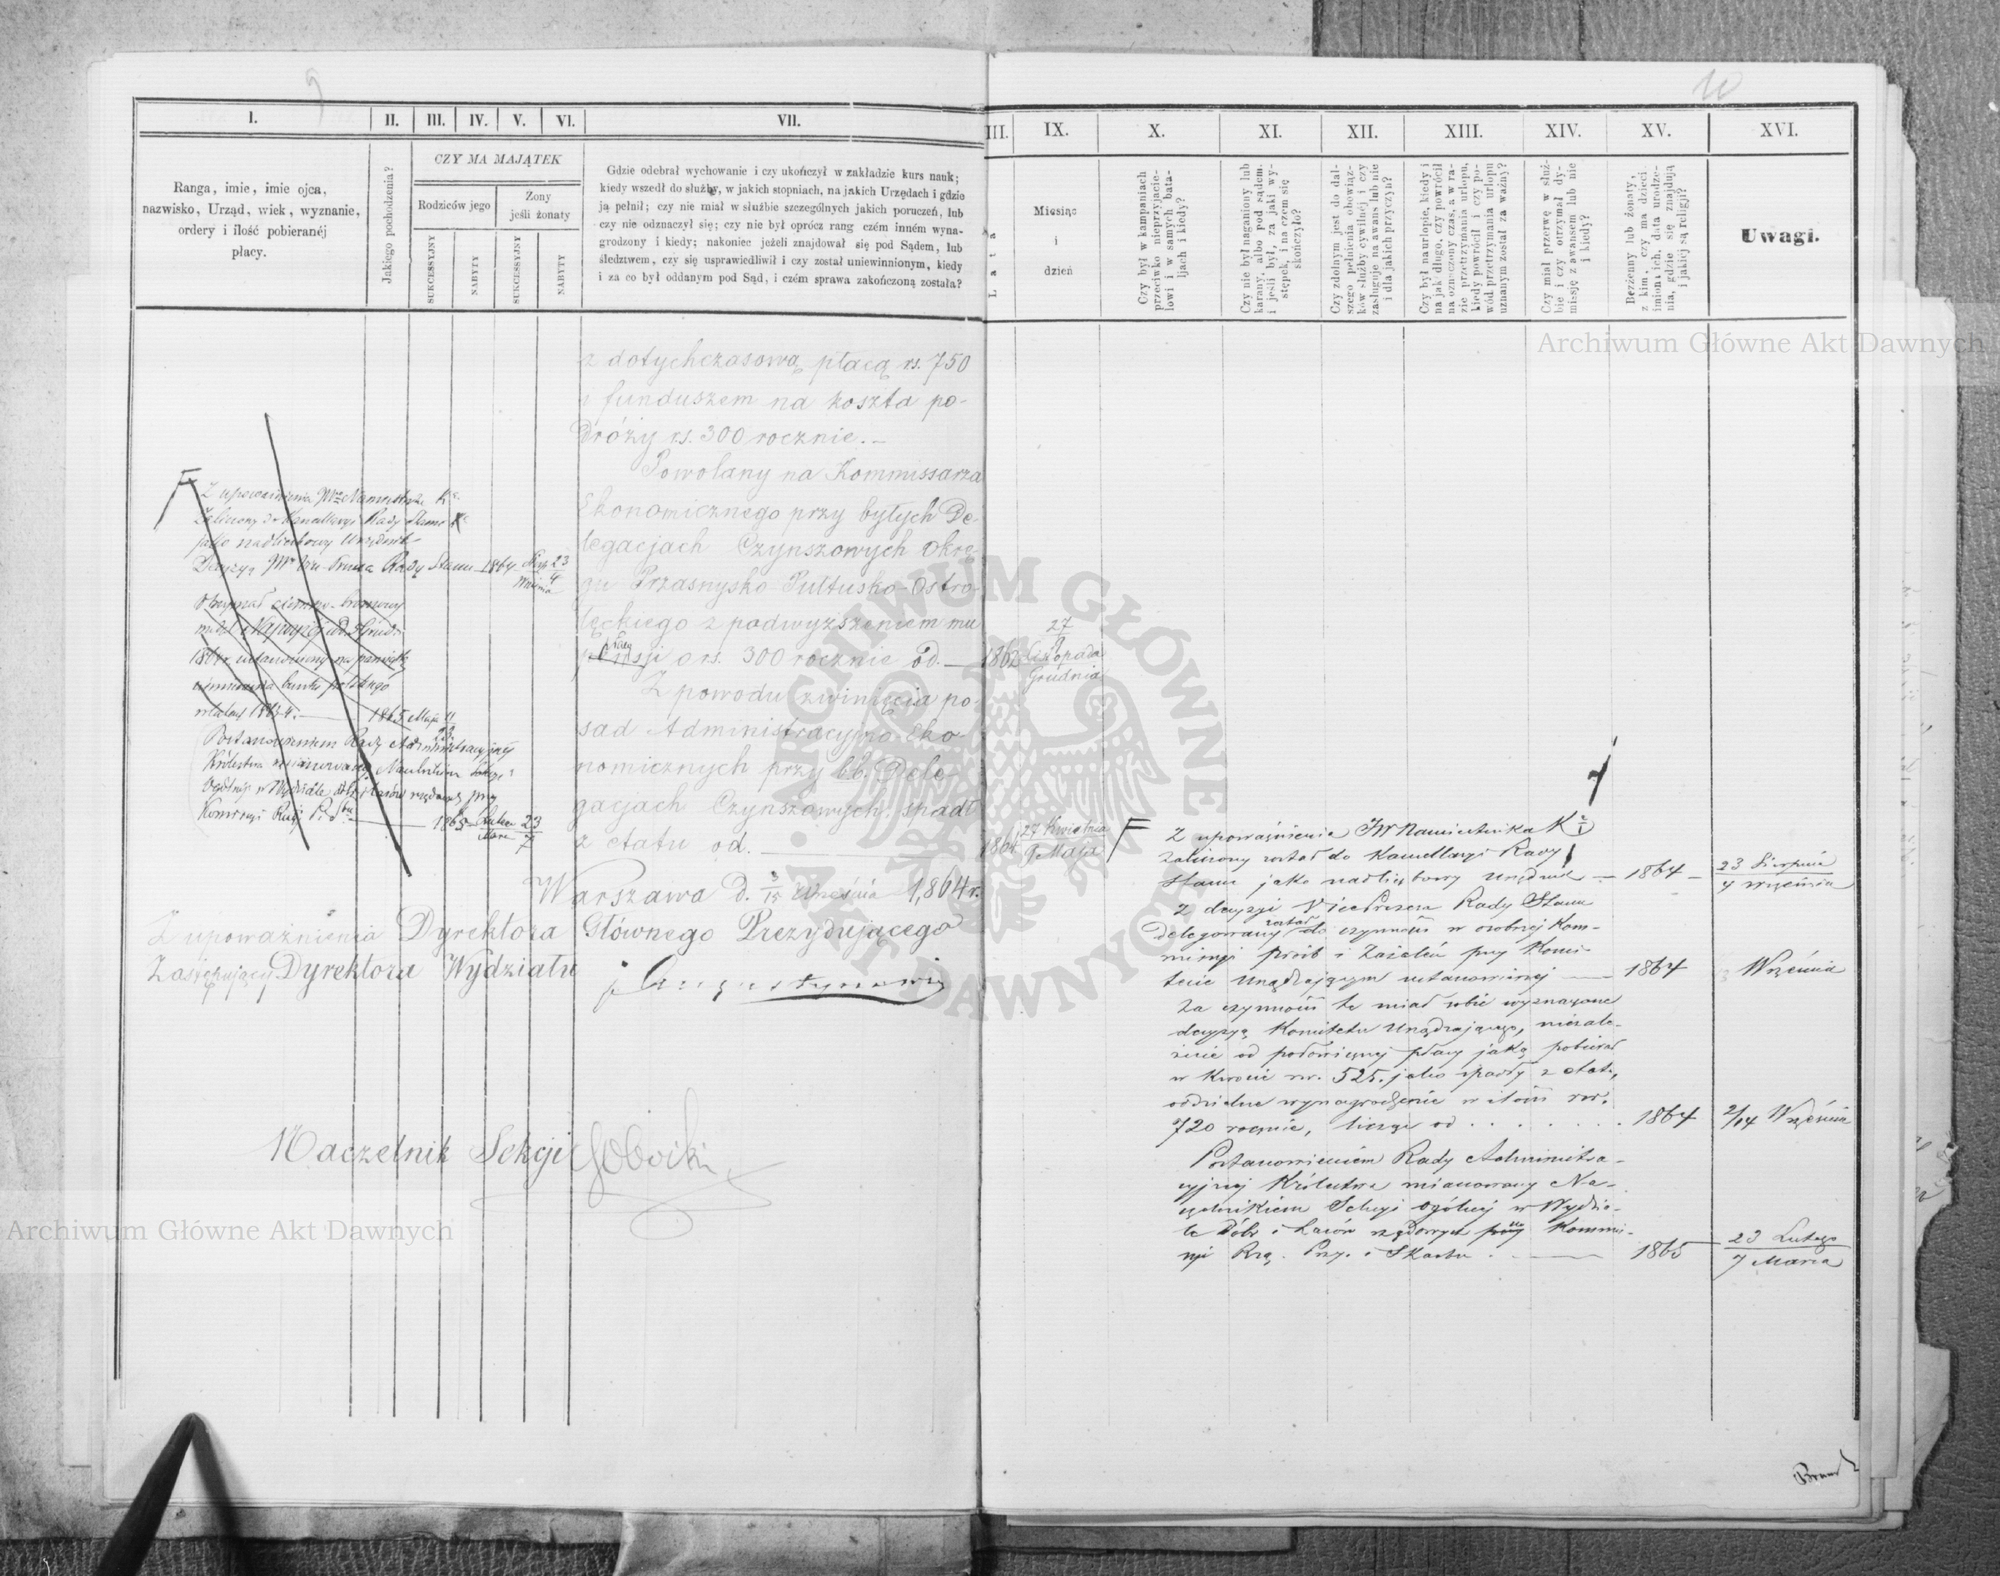 9
10
I.
II.
III.
IV.
V.
VI.
VII.
III.
IX.
X.
XI.
XII.
XIII.
XIV.
XV.
XVI.
Ranga, imie, imie ojca,
nazwisko, Urząd, wiek, wyznanie,
ordery i ilość pobieranéj
płacy.
Jakiego pochodzenia?
CZY MA MAJĄTEK
Rodziców jego
Żony
jeśli żonaty
SUKCESSYJNY
NABYTY
SUKCESSYJNY
NABYTY
Gdzie odebrał wychowanie i czy ukończył w zakładzie kurs nauk;
kiedy wszedł do służby, w jakich stopniach, na jakich Urzędach i gdzie
ją pełnił; czy nie miał w służbie szczególnych jakich poruczeń, lub
czy nie odznaczył się; czy nie był oprócz rang czém inném wyna-
grodzony i kiedy; nakoniec jeżeli znajdował się pod Sądem, lub
śledztwem, czy się usprawiedliwił i czy został uniewinnionym, kiedy
i za co był oddanym pod Sąd, i czém sprawa zakończoną została?
Lata
Miesiąc
i
dzień
Czy był w kampaniach
przeciwko nieprzyjacie-
lowi i w samych bata-
ljach i kiedy?
Czy nie był naganiony lub
karany, albo pod sądem
i jeśli był, za jaki wy-
stępek, i na czem się
skończyło?
Czy zdolnym jest do dal-
szego pełnienia obowiąz-
ków służby cywilnéj i czy
zasługuje na awans lub nie
i dla jakich przyczyn?
Czy był na urlopie, kiedy i
na jak długo, czy powrócił
na oznaczony czas, a w ra-
zie przetrzymania urlopu,
kiedy powrócił i czy po-
wód przetrzymania urlopu
uznanym został za ważny?
Czy miał przerwę w służ-
bie i czy otrzymał dy-
missję z awansem lub nie
i kiedy?
Bezżenny lub żonaty,
z kim, czy ma dzieci
imiona ich, data urodze-
nia, gdzie się znajdują
i jakiéj są religji?
Uwagi.
z dotychczasową płacą rs. 750
i funduszem na koszta po-
dróży rs. 300 rocznie.—
Powołany na Kommissarza
Ekonomicznego przy byłych De-
legacjach Czynszowych Okrę-
gu Przasnysko Pułtusko-Ostro-
łęckiego z podwyższeniem mu
pensji o rs. 300 rocznie od. — 1862 27/9 Listopada Grudnia
Z powodu zwinięcia po-
sad Administracyjno Eko-
nomicznych przy bb. Dele-
gacjach Czynszowych, spadł
z etatu od. — 1864 27 Kwietnia 9 Maja
Warszawa d. 3/15 Września 1,864 r.
Z upoważnienia Dyrektora Głównego Prezydującego
Zastępujący Dyrektora Wydziału
Naczelnik Sekcji
Z upoważnienia Namiestnika K.
Zaliczony do Kancellaryi Rady Stanu
jako nadliczbowy Urzędnik
Decyzją Rady Stanu 1864 23/4 Września
Otrzymał
1864 r. ustanowiony na pamiątkę
uśmierzenia buntu polskiego
w latach 1863/4. — 1865 Maja 11/23
Postanowieniem Rady Administracyjnej
Królestwa mianowany Naczelnikiem Sekcyi
Ogólnej w Wydziale dóbr i lasów rządowych przy
Komissyi Rząd. P. i Sbu — 1865 23/7
Z upoważnienia JW Namiestnika K
zaliczony został do Kancellaryi Rady
Stanu jako nadliczbowy Urzędnik — 1864 — 23 Sierpnia 4 Września
Z decyzji VicePrezesa Rady Stanu
delegowany został do czynności w osobnej Kom-
missyi Próśb i Zażaleń przy Komi-
tecie Urządzającym ustanowionej — 1864 Września
Za czynności te miał sobie wyznaczone
decyzją Komitetu Urządzającego, niezale-
żnie od połowicznej płacy jaką pobierał
w kwocie rsr. 525. jako spadły z etatu,
oddzielne wynagrodzenie w ilości rsr.
720 rocznie, licząc od . . . . . . . 1864 2/14 Września
Postanowieniem Rady Administra-
cyjnej Królestwa mianowany Na-
czelnikiem Sekcyi Ogólnej w Wydzia-
le Dóbr i Lasów rządowych przy Kommis-
syi Rzą. Przy. i Skarbu . — 1865 23 Lutego 7 Marca
Archiwum Główne Akt Dawnych
Archiwum Główne Akt Dawnych
ARCHIWUM GŁÓWNE AKT DAWNYCH